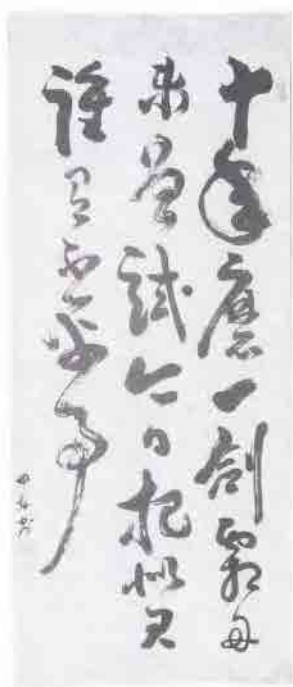 十年磨一劍霜刃
未曾試今日把似君
誰有不平事